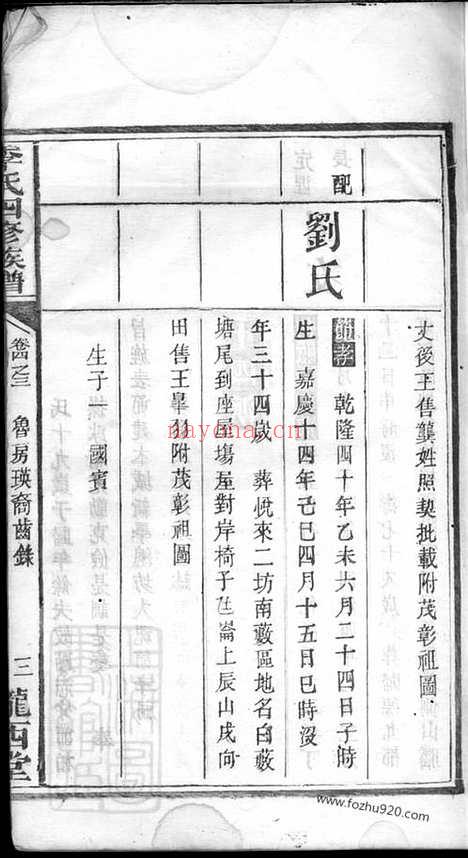 丈後王售龔姓照契批載附茂彰祖圖
配
劉氏
節孝
乾隆四十年乙未六月二十四日子時
生 嘉慶十四年己巳四月十五日巳時沒
年三十四歲 葬悅來二坊南藪區地名白藪
塘尾到座屋塲屋對岸椅子𠱾崙上辰山戌向
田售王畢俱附茂彰祖圖
生子 國賓
李氏四修族譜
卷四之三 魯房瑛裔齒錄
三 隴西堂
naydna.cn
www.fozhu920.com